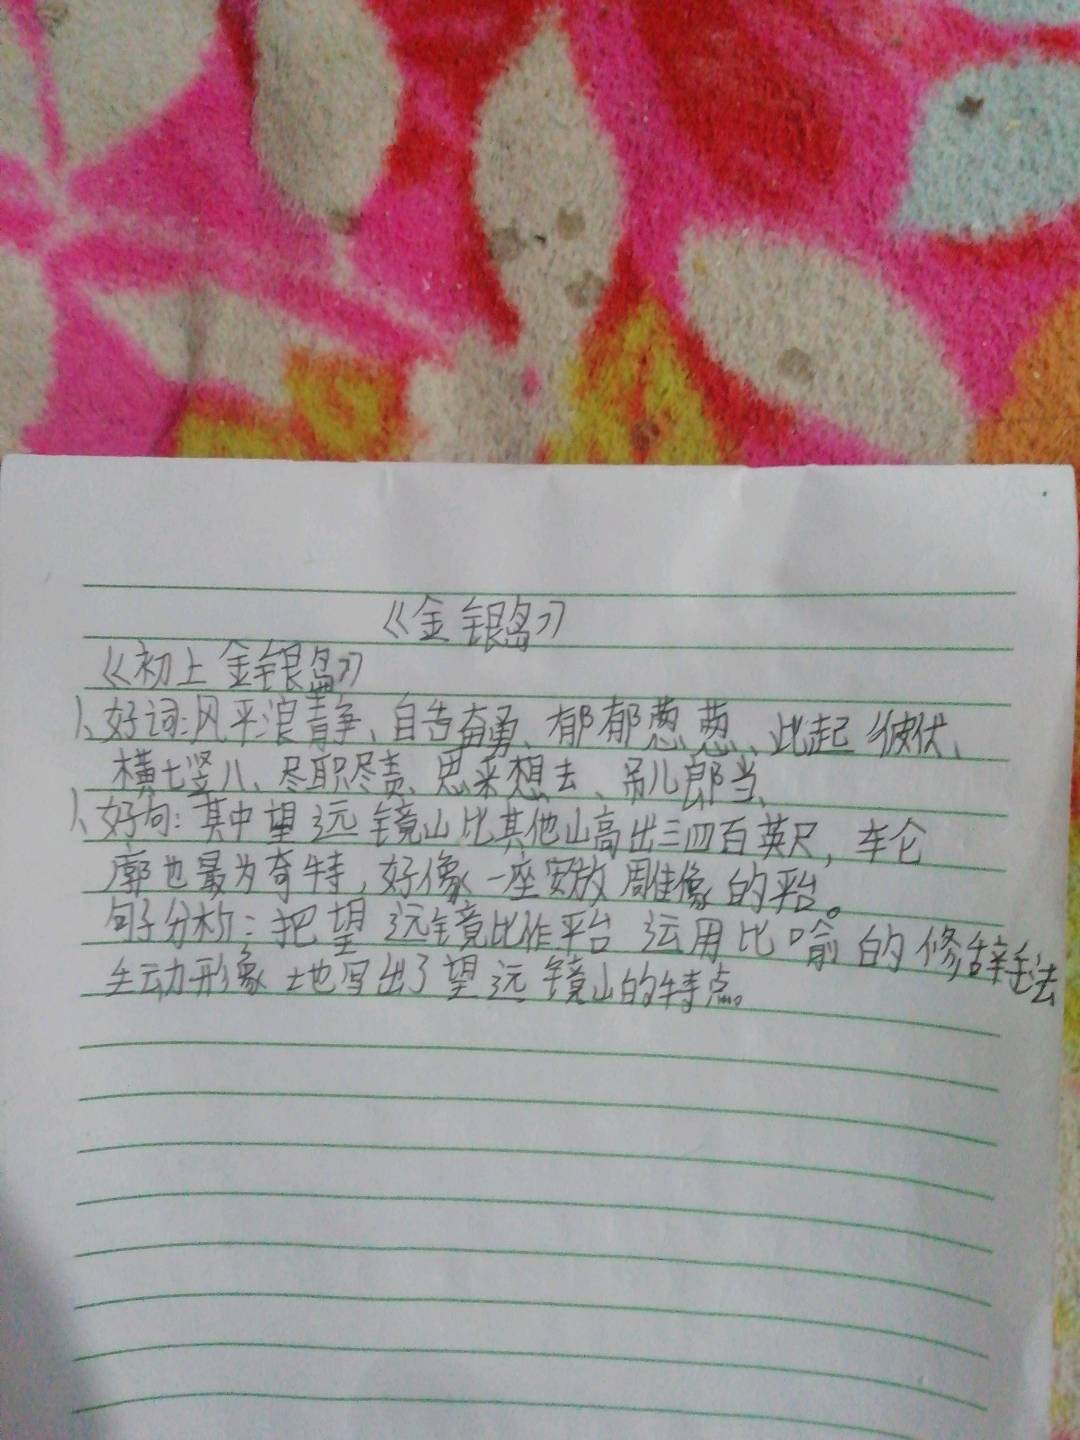 《金银岛》
《初上金银岛》
1、好词:风平浪静、自告奋勇、郁郁葱葱、此起彼伏、
横七竖八、尽职尽责、思来想去、吊儿郎当、
1、好句:其中望远镜山比其他山高出三四百英尺,车仑
廓也最为奇特,好像一座安放雕像的平台。
句子分析:把望远镜比作平台运用比喻的修辞手法
生动形象地写出了望远镜山的特点。